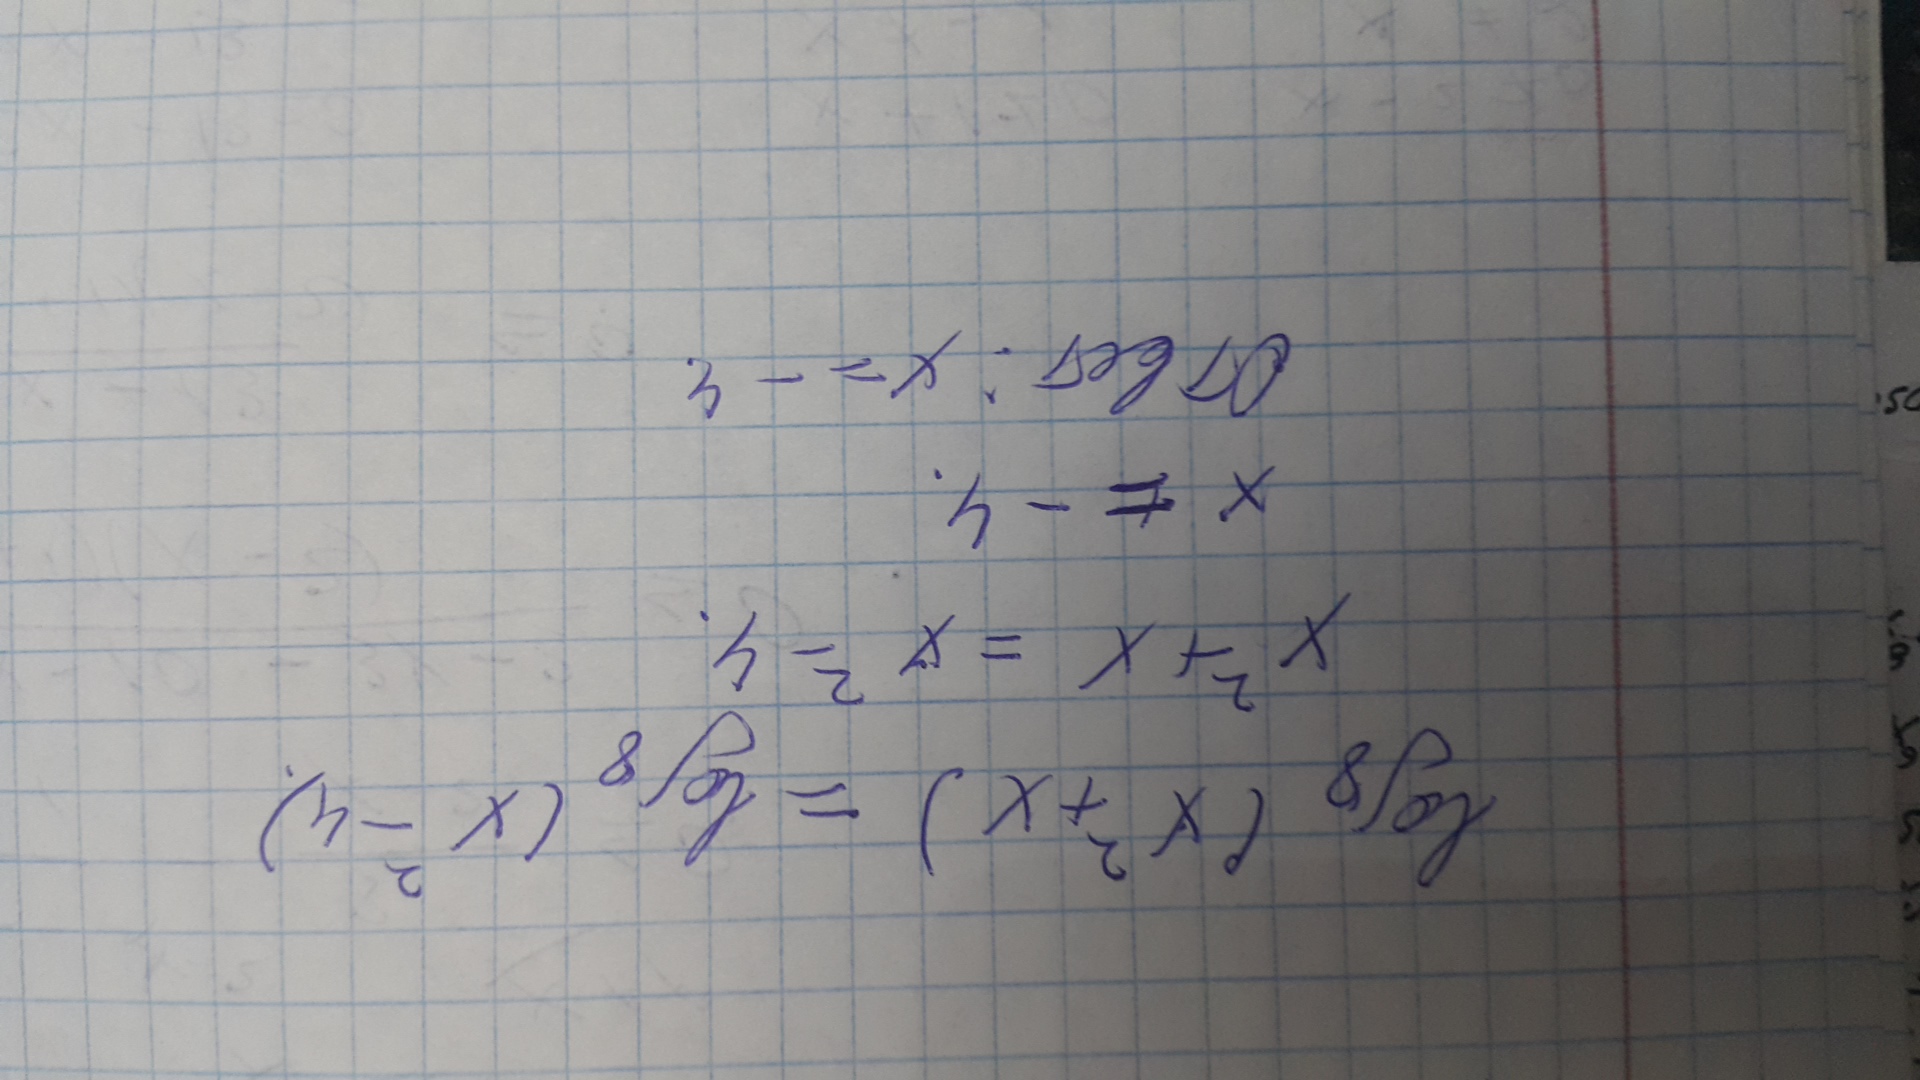 log₈ (x²+x) = log₈ (x²-4).
x²+x = x²-4.
x = -4.
Ответ: x = -4